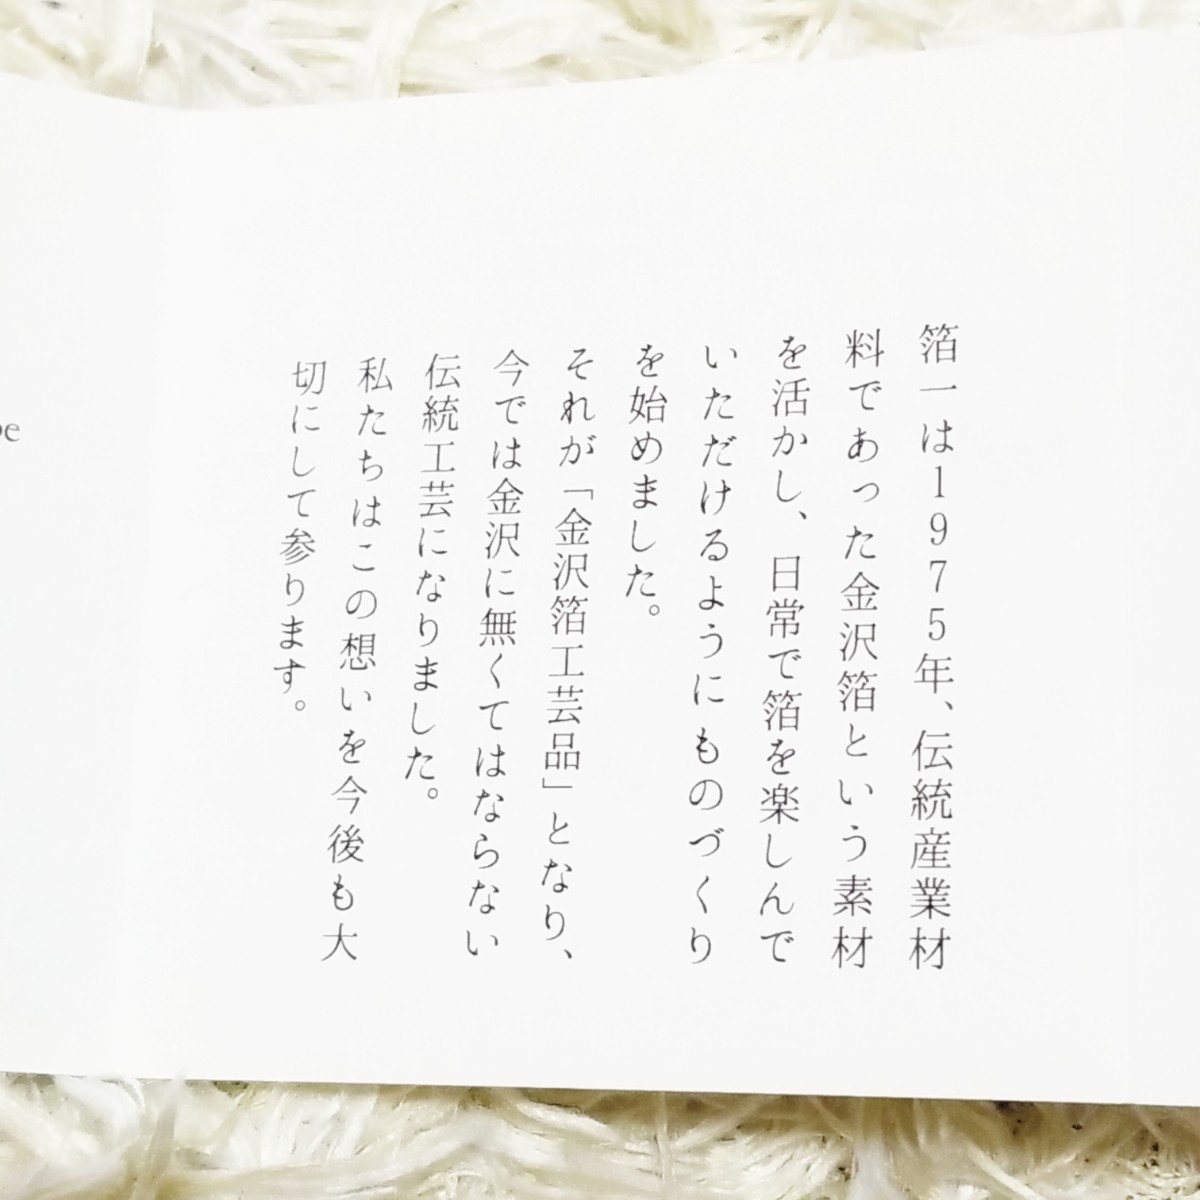 箔一は1975年、伝統産業材
料であった金沢箔という素材
を活かし、日常で箔を楽しんで
いただけるようにものづくり
を始めました。
それが「金沢箔工芸品」となり、
今では金沢に無くてはならない
伝統工芸になりました。
私たちはこの想いを今後も大
切にして参ります。